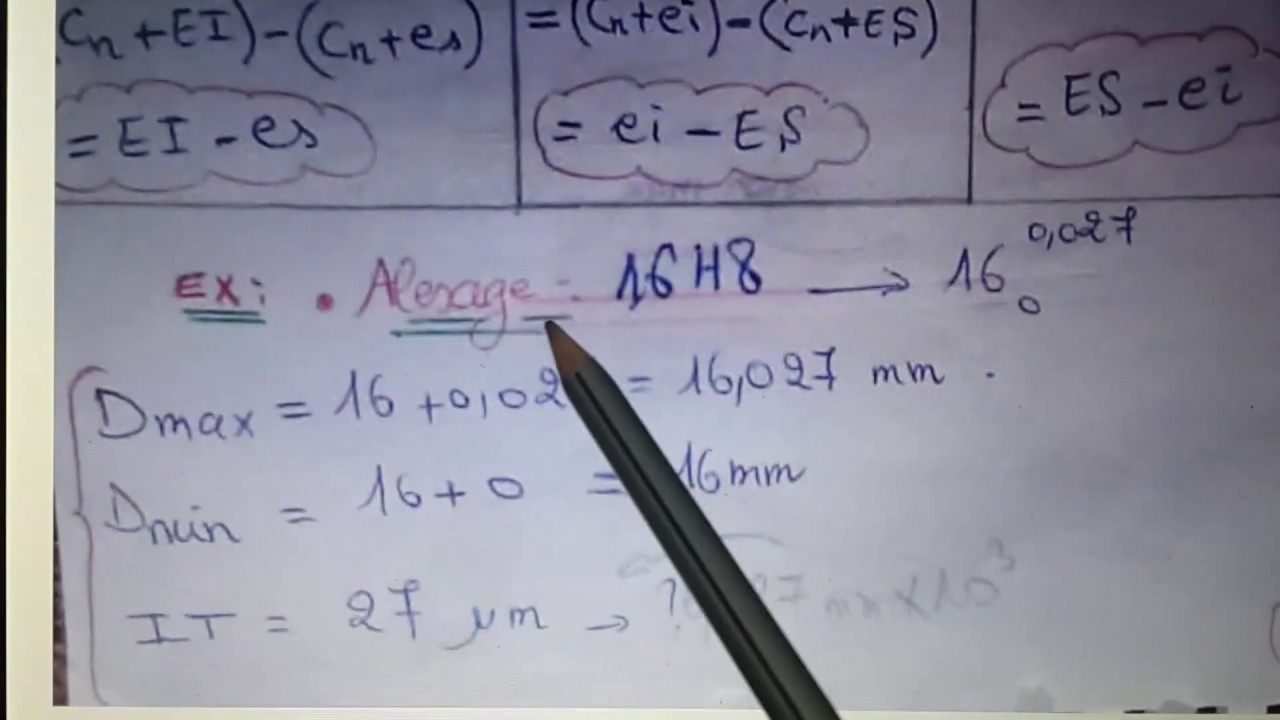 Cn+EI)-(Cn+es)
= EI - es
=(Cn+ei)-(Cn+ES)
= ei - ES
= ES - ei
EX: • Alesage: 16H8 → 16 0,027 0
Dmax = 16 +0,02 = 16,027 mm .
Dmin = 16 + 0 = 16mm
IT = 27 µm → ? 27 mm x10³